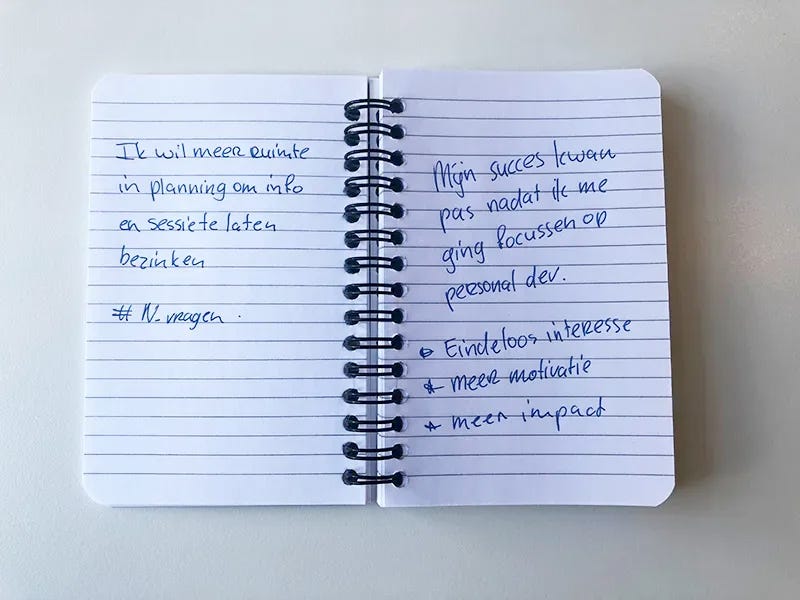 Ik wil meer ruimte
in planning om info
en sessie te laten
bezinken
# N-vragen.
Mijn succes kwam
pas nadat ik me
ging focussen op
personal dev.
Eindeloos interesse
* meer motivatie
* meer impact